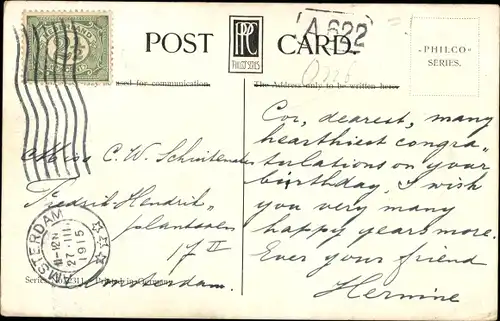 NEDERLAND
2½
POST CARD.
PPC
PHILCO SERIES
A.622
- PHILCO -
SERIES.
used for communication.
The Address only to be written here.
Miss C. W. Schuitemaker
Fredrik Hendrik-
plantsoen
17 II
Amsterdam.
AMSTERDAM
11-12 V
27·III
1915
Series No. 2311 Printed in Germany
Cor, dearest, many
heartiest congra-
tulations on your
birthday, I wish
you very many
happy years more.
Ever your friend
Hermine